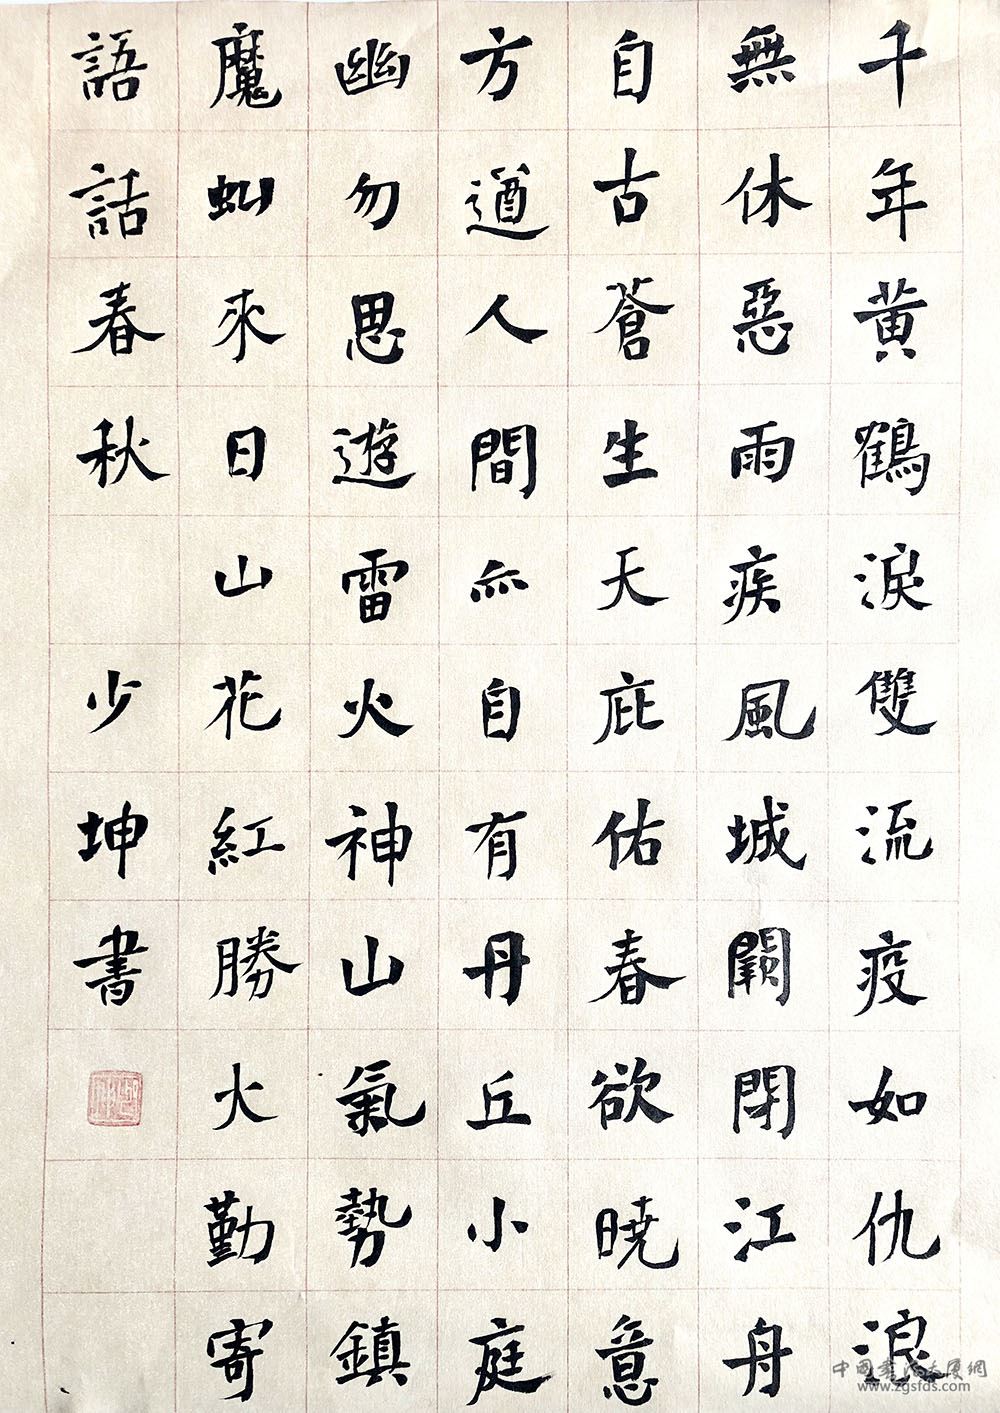 千年黄鶴淚雙流疫如仇浪
無休惡雨疾風城闕閉江舟
自古蒼生天庇佑春欲曉意
方遒人間亦自有丹丘小庭
幽勿思遊雷火神山氣勢鎮
魔虯來日山花紅勝火勤寄
語話春秋
少坤書
中国書法大厦網
www.zgsfds.com